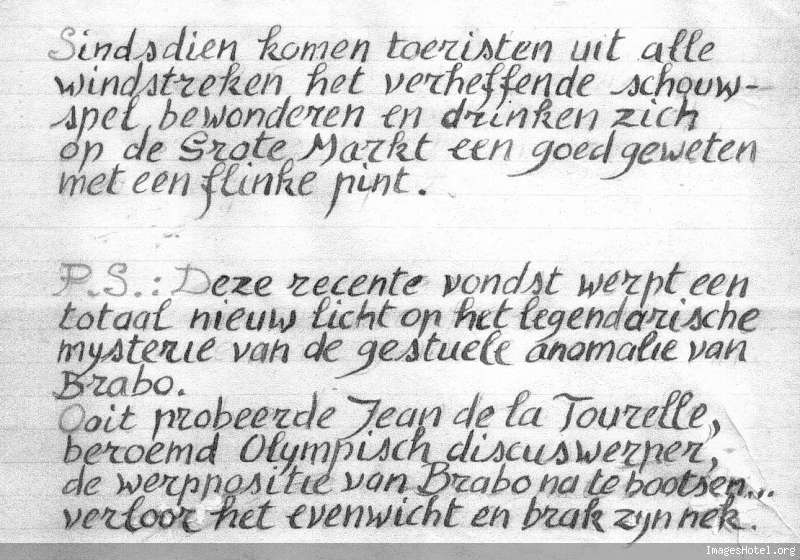 Sindsdien komen toeristen uit alle
windstreken het verheffende schouw-
spel bewonderen en drinken zich
op de Grote Markt een goed geweten
met een flinke pint.
P.S.: Deze recente vondst werpt een
totaal nieuw licht op het legendarische
mysterie van de gestuele anomalie van
Brabo.
Ooit probeerde Jean de la Tourelle,
beroemd Olympisch discuswerper,
de werppositie van Brabo na te bootsen...
verloor het evenwicht en brak zyn nek.
ImagesHotel.org